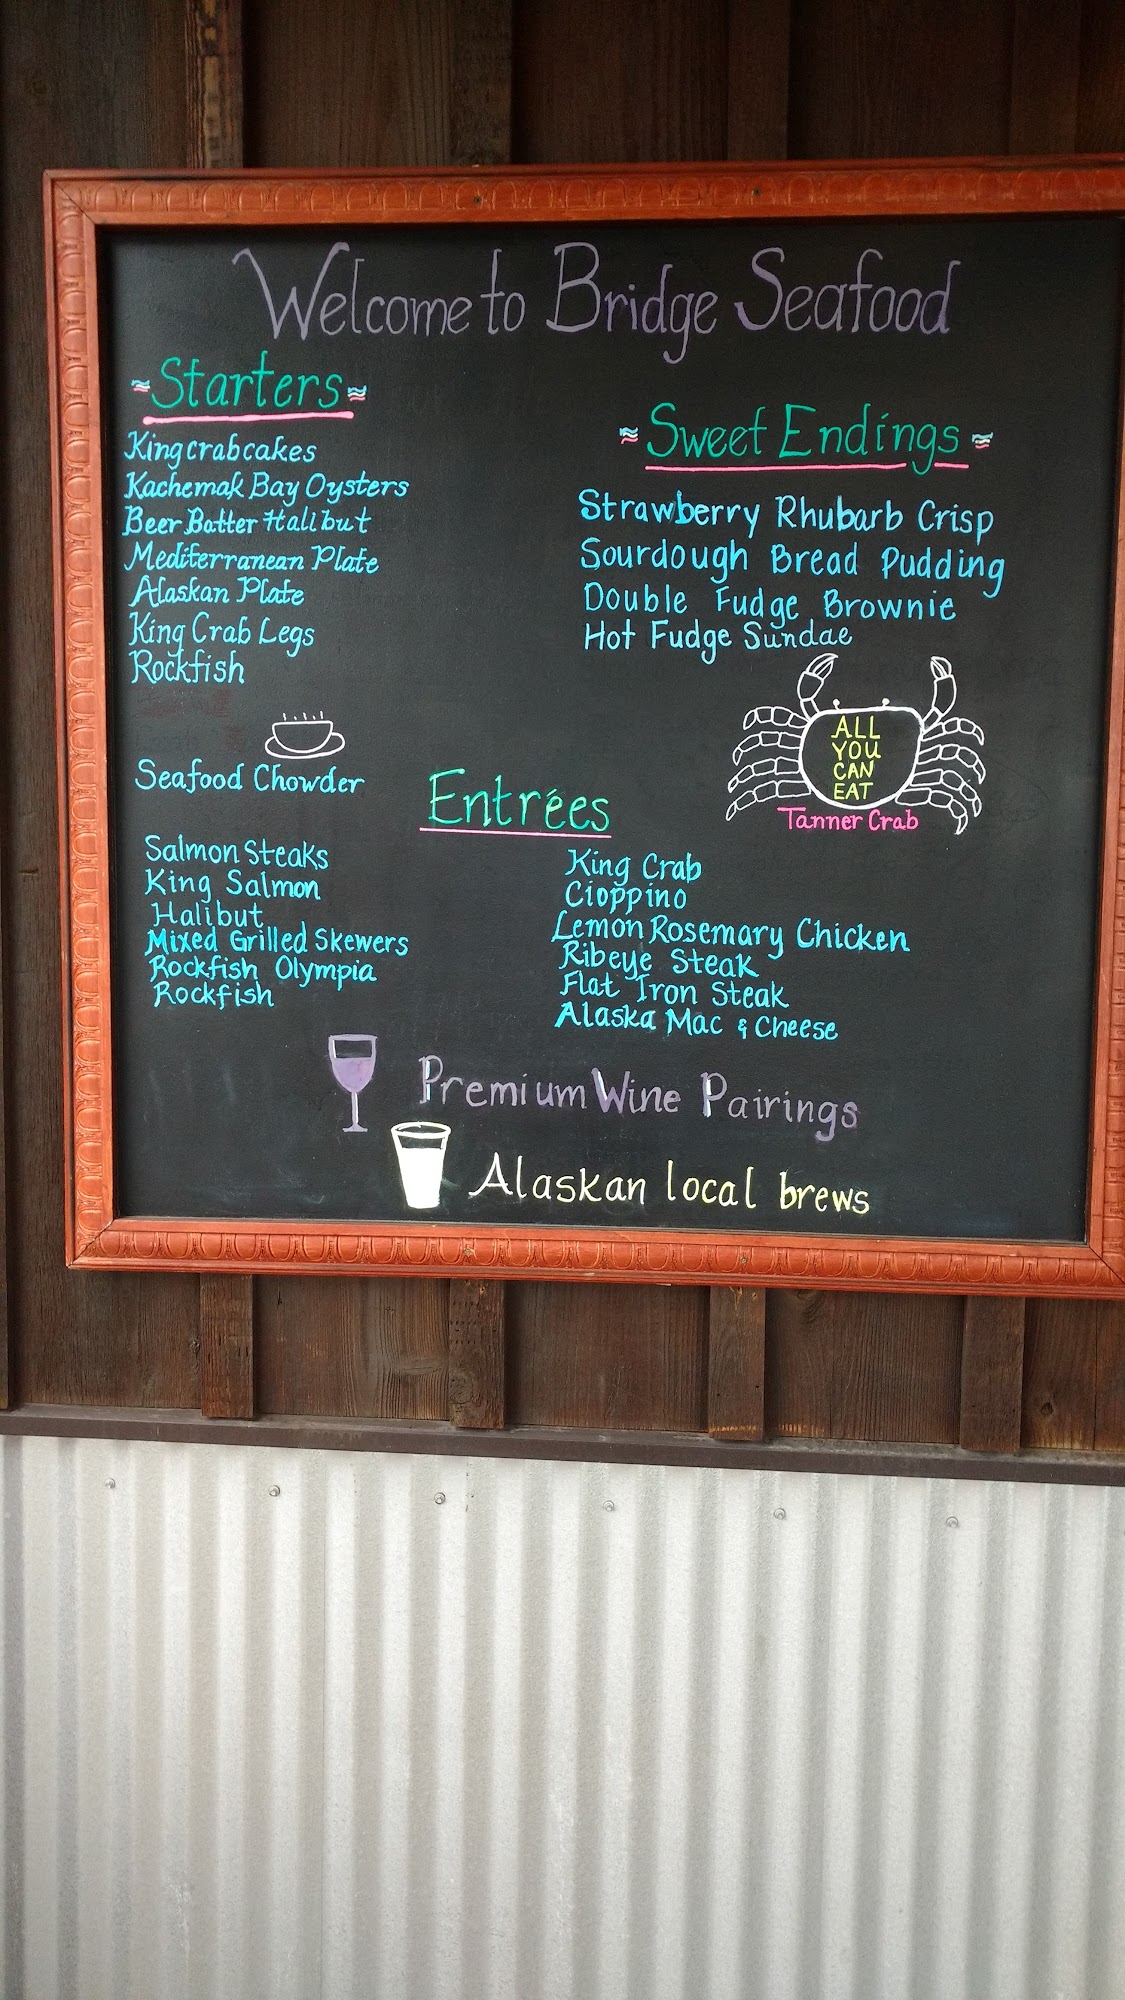 Welcome to Bridge Seafood
Starters
King crab cakes
Kachemak Bay Oysters
Beer Batter Halibut
Mediterranean Plate
Alaskan Plate
King Crab Legs
Rockfish
Seafood Chowder
Sweet Endings
Strawberry Rhubarb Crisp
Sourdough Bread Pudding
Double Fudge Brownie
Hot Fudge Sundae
ALL
YOU
CAN
EAT
Tanner Crab
Entrées
Salmon Steaks
King Salmon
Halibut
Mixed Grilled Skewers
Rockfish Olympia
Rockfish
King Crab
Cioppino
Lemon Rosemary Chicken
Ribeye Steak
Flat Iron Steak
Alaska Mac & Cheese
Premium Wine Pairings
Alaskan local brews